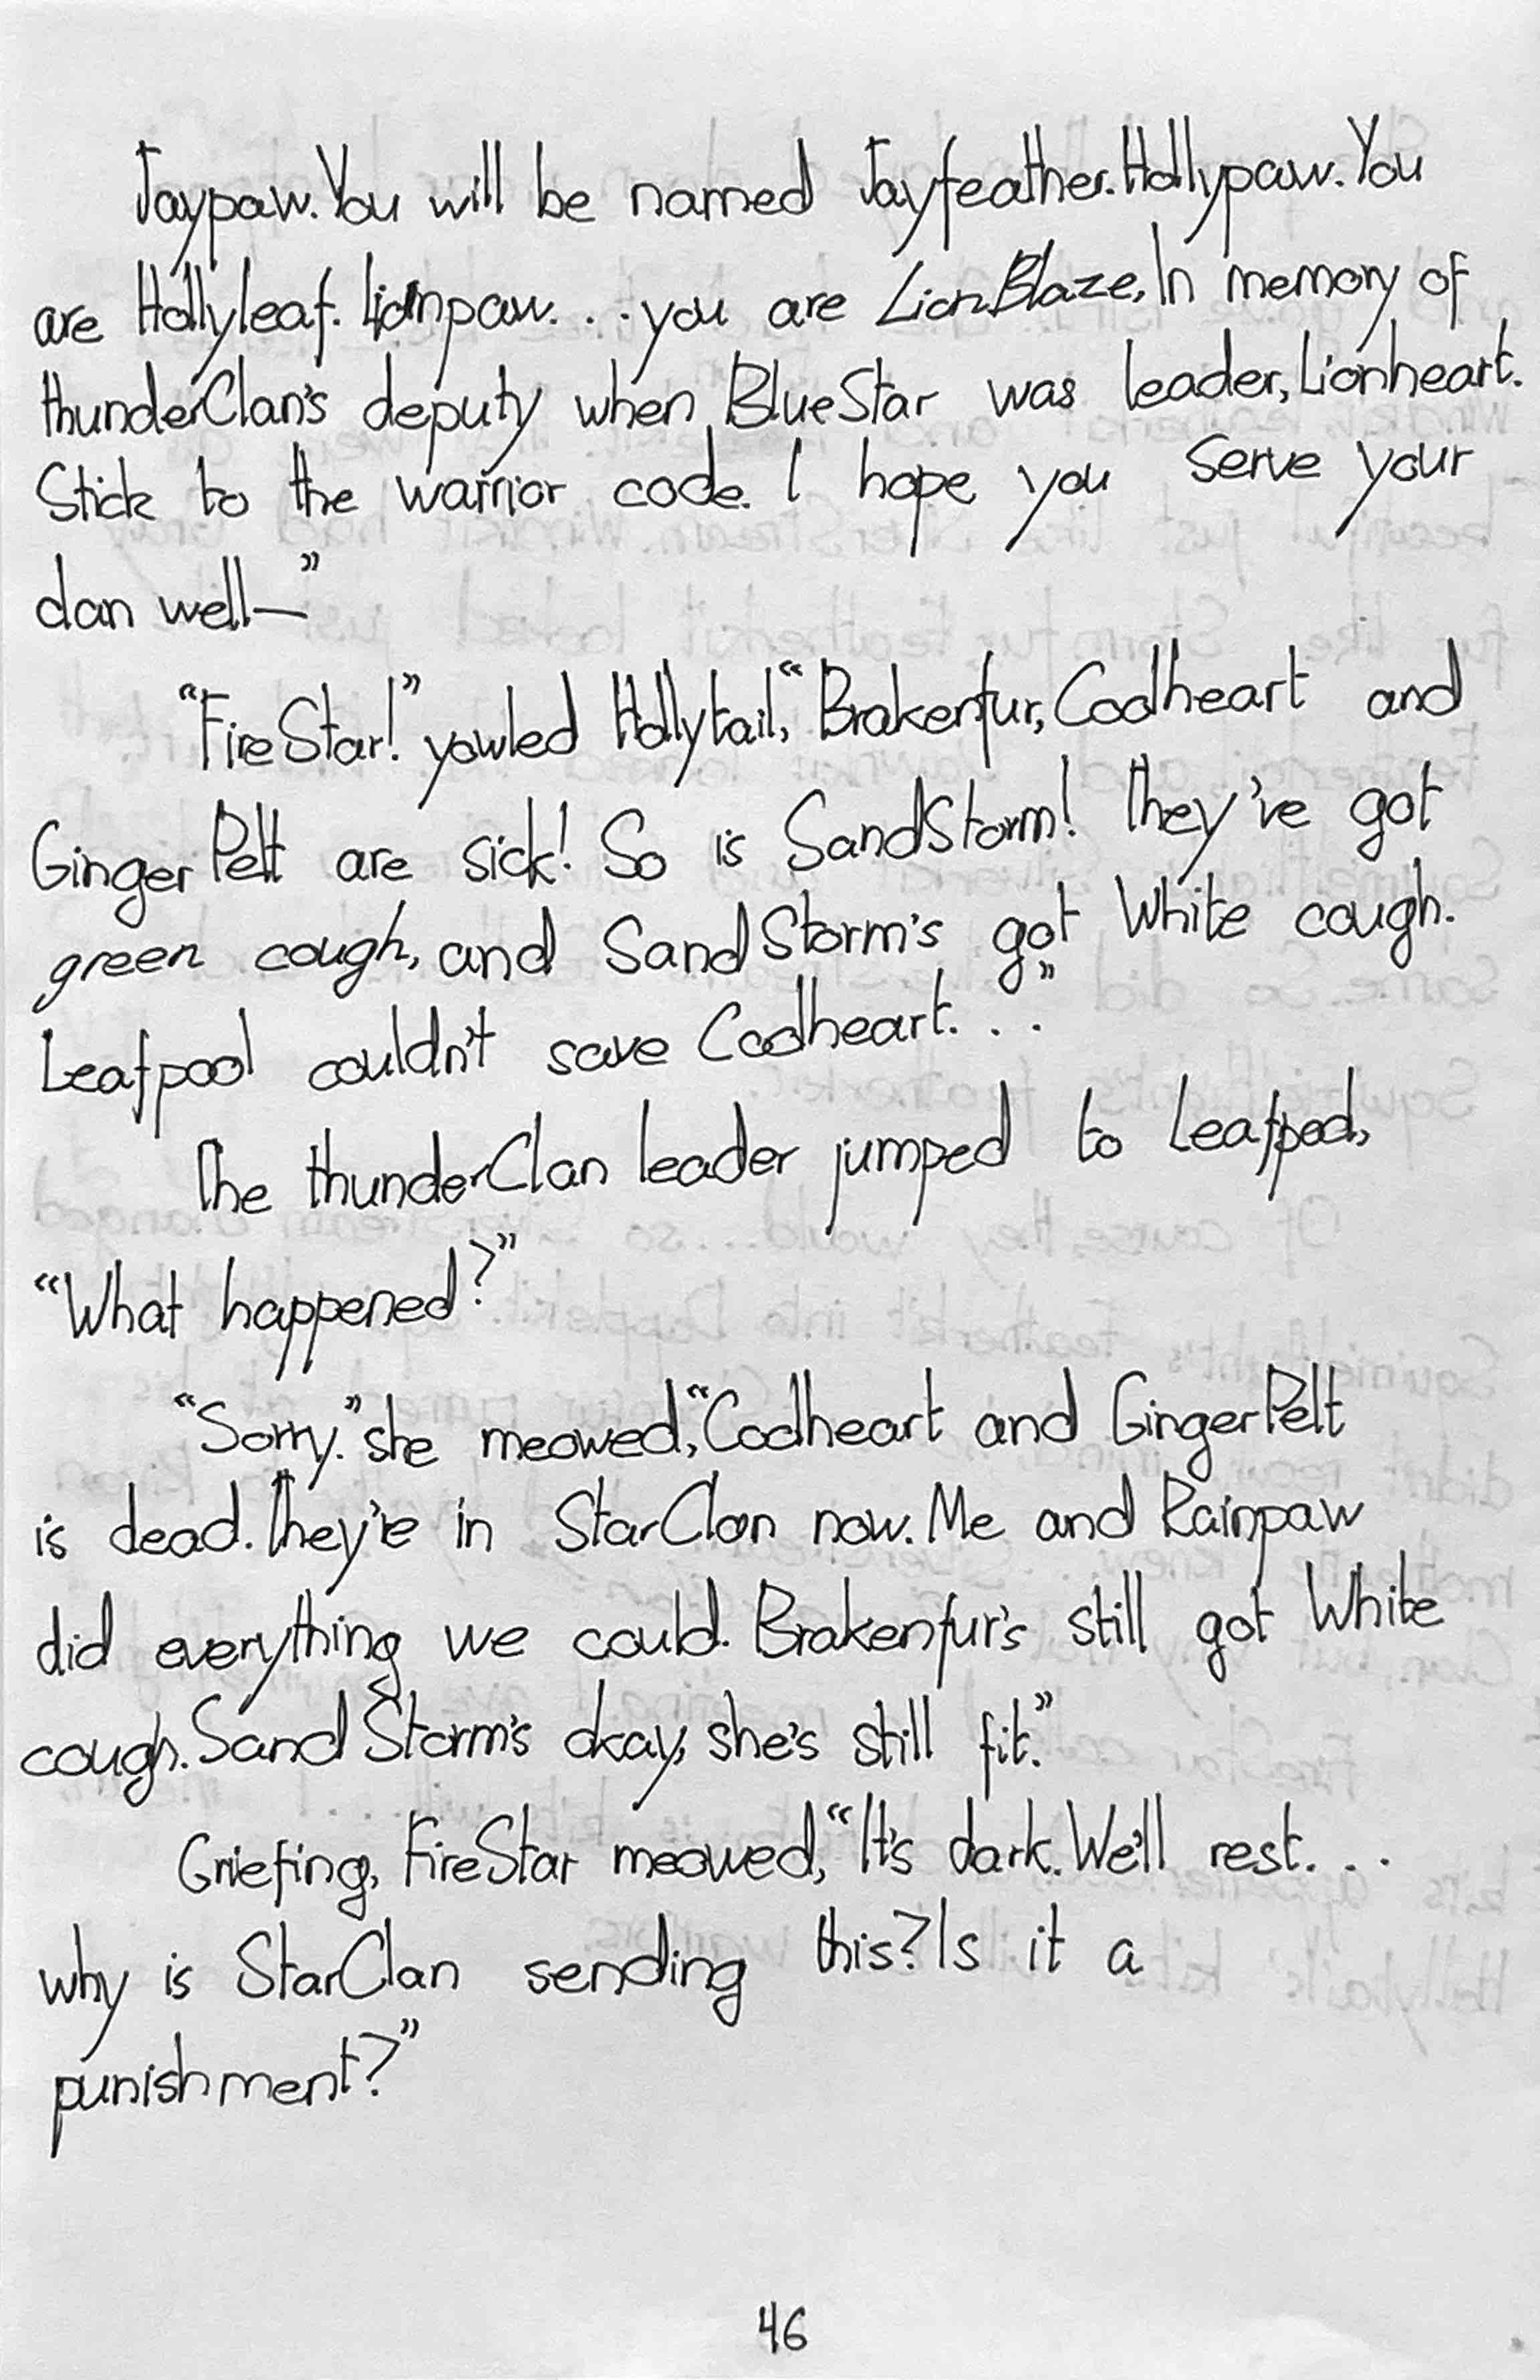 Jaypaw. You will be named Jayfeather. Hollypaw. You
are Hollyleaf. Lionpaw... you are LionBlaze, In memory of
thunderClan's deputy when BlueStar was leader, Lionheart.
Stick to the warrior code. I hope you serve your
clan well—"
"FireStar!" yowled Hollytail, "Brakenfur, Coalheart and
GingerPelt are sick! So is SandStorm! They've got
green cough, and SandStorm's got White cough.
Leafpool couldn't save Coalheart..."
The thunderClan leader jumped to Leafpool,
"What happened?"
"Sorry." she meowed, "Coalheart and GingerPelt
is dead. They're in StarClan now. Me and Rainpaw
did everything we could. Brakenfur's still got White
cough. SandStorm's okay, she's still fit."
Griefing, FireStar meowed, "It's dark. We'll rest...
why is StarClan sending this? Is it a
punishment?"
46